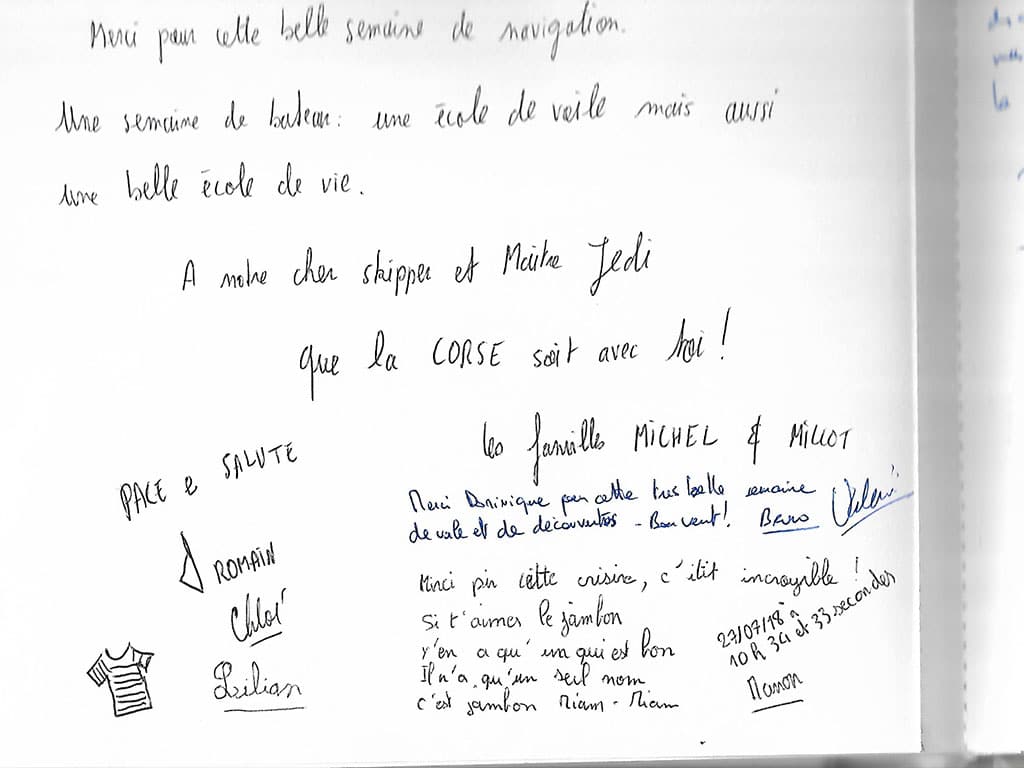 Merci pour cette belle semaine de navigation.
Une semaine de bateau : une école de voile mais aussi
une belle école de vie.
A notre cher skipper et Maître Jedi
que la CORSE soit avec toi !
les familles MICHEL & MILLOT
PACE e SALUTE
Merci Dominique pour cette très belle semaine
de voile et de découvertes - Bon vent ! Bruno
ROMAIN
Chloé
Lilian
Minci pir cètte crisire, c'itit incroyible !
Si t'aimes le jambon
Y'en a qu'un qui est bon
Il n'a qu'un seul nom
c'est jambon Miam - Miam
27/07/18 à
10 h 34 et 33 secondes
Manon